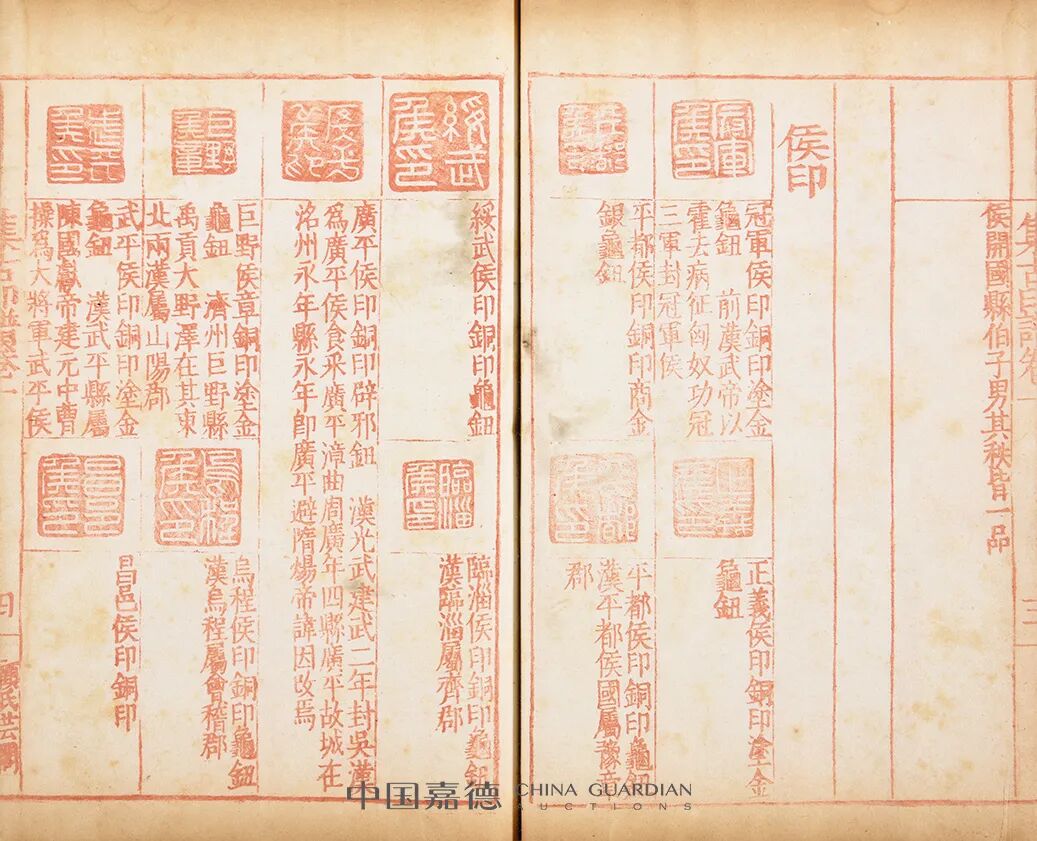 集古印譜卷一
三
侯開國縣伯子男其秩皆一品
侯印
冠軍侯印銅印塗金
龜鈕 前漢武帝以
霍去病征匈奴功冠
三軍封冠軍侯
正義侯印銅印塗金
龜鈕
平都侯印銅印商金
銀龜鈕
平都侯印銅印龜鈕
漢平都侯國屬豫章
郡
綏武侯印
綏武侯印銅印龜鈕
臨淄侯印
臨淄侯印銅印龜鈕
漢臨淄屬齊郡
廣平侯印銅印辟邪鈕 漢光武建武二年封吳漢
為廣平侯食采廣平漳曲周廣年四縣廣平故城在
洺州永年縣永年即廣平避隋煬帝諱因改焉
巨野侯章銅印塗金
龜鈕 濟州巨野縣
禹貢大野澤在其東
北兩漢屬山陽郡
烏程侯印銅印龜鈕
漢烏程屬會稽郡
武平侯印銅印塗金
龜鈕 漢武平縣屬
陳國獻帝建元中曹
操為大將軍武平侯
昌邑侯印銅印
集古印譜卷一
四
顧氏芸閣
中国嘉德 CHINA GUARDIAN
AUCTIONS